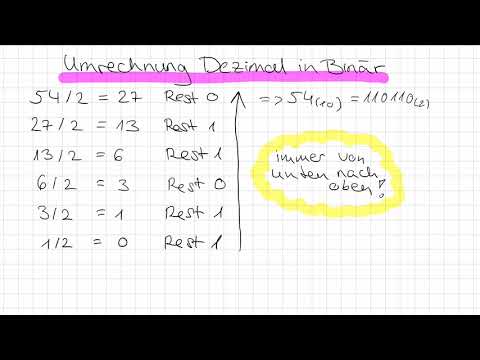 Umrechnung Dezimal in Binär
54/2 = 27 Rest 0
27/2 = 13 Rest 1
13/2 = 6 Rest 1
6/2 = 3 Rest 0
3/2 = 1 Rest 1
1/2 = 0 Rest 1
=> 54(10) = 110110(2)
immer von
unten nach
oben!